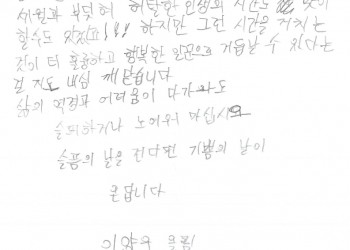 세월과 부딪혀 허탈한 인생의 시간도 맛이
할수도 있겠고!!! 하지만 그런 시간을 거치는
것이 더 훌륭하고 행복한 일꾼으로 거듭날 수 있다는
걸 지도 내심 깨 닫습니다
삶의 역경과 어려움이 다가와도
슬퍼하거나 노여워 마십시요
슬픔의 날을 견디면 기쁨의 날이
온답니다
올림